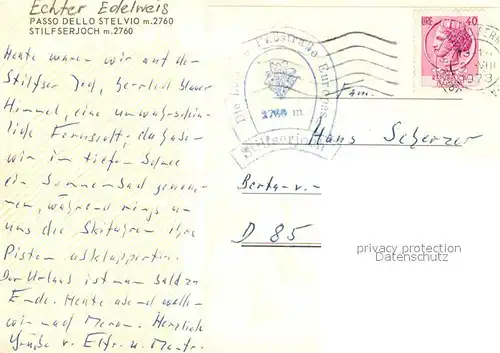 Echter Edelweis
PASSO DELLO STELVIO m. 2760
STILFSERJOCH m. 2760
Heute waren wir auf dem
Stilfser Joch, herrlich blauer
Himmel, eine unwahrschein-
liche Fernsicht, da haben
wir im tiefen Schnee
ein Sonnenbad genom-
men, während rings um
uns die Skifahrer ihre
Pisten abklapperten.
Der Urlaub ist nun bald zu
Ende. Heute abend wollen
wir nach Meran. Herzliche
Grüße v.
LIRE 40
1973
Europas
2760 m
Stilfserjoch
Fam.
Hans Scherzer
Berta-v.-
D 85
privacy protection
Datenschutz